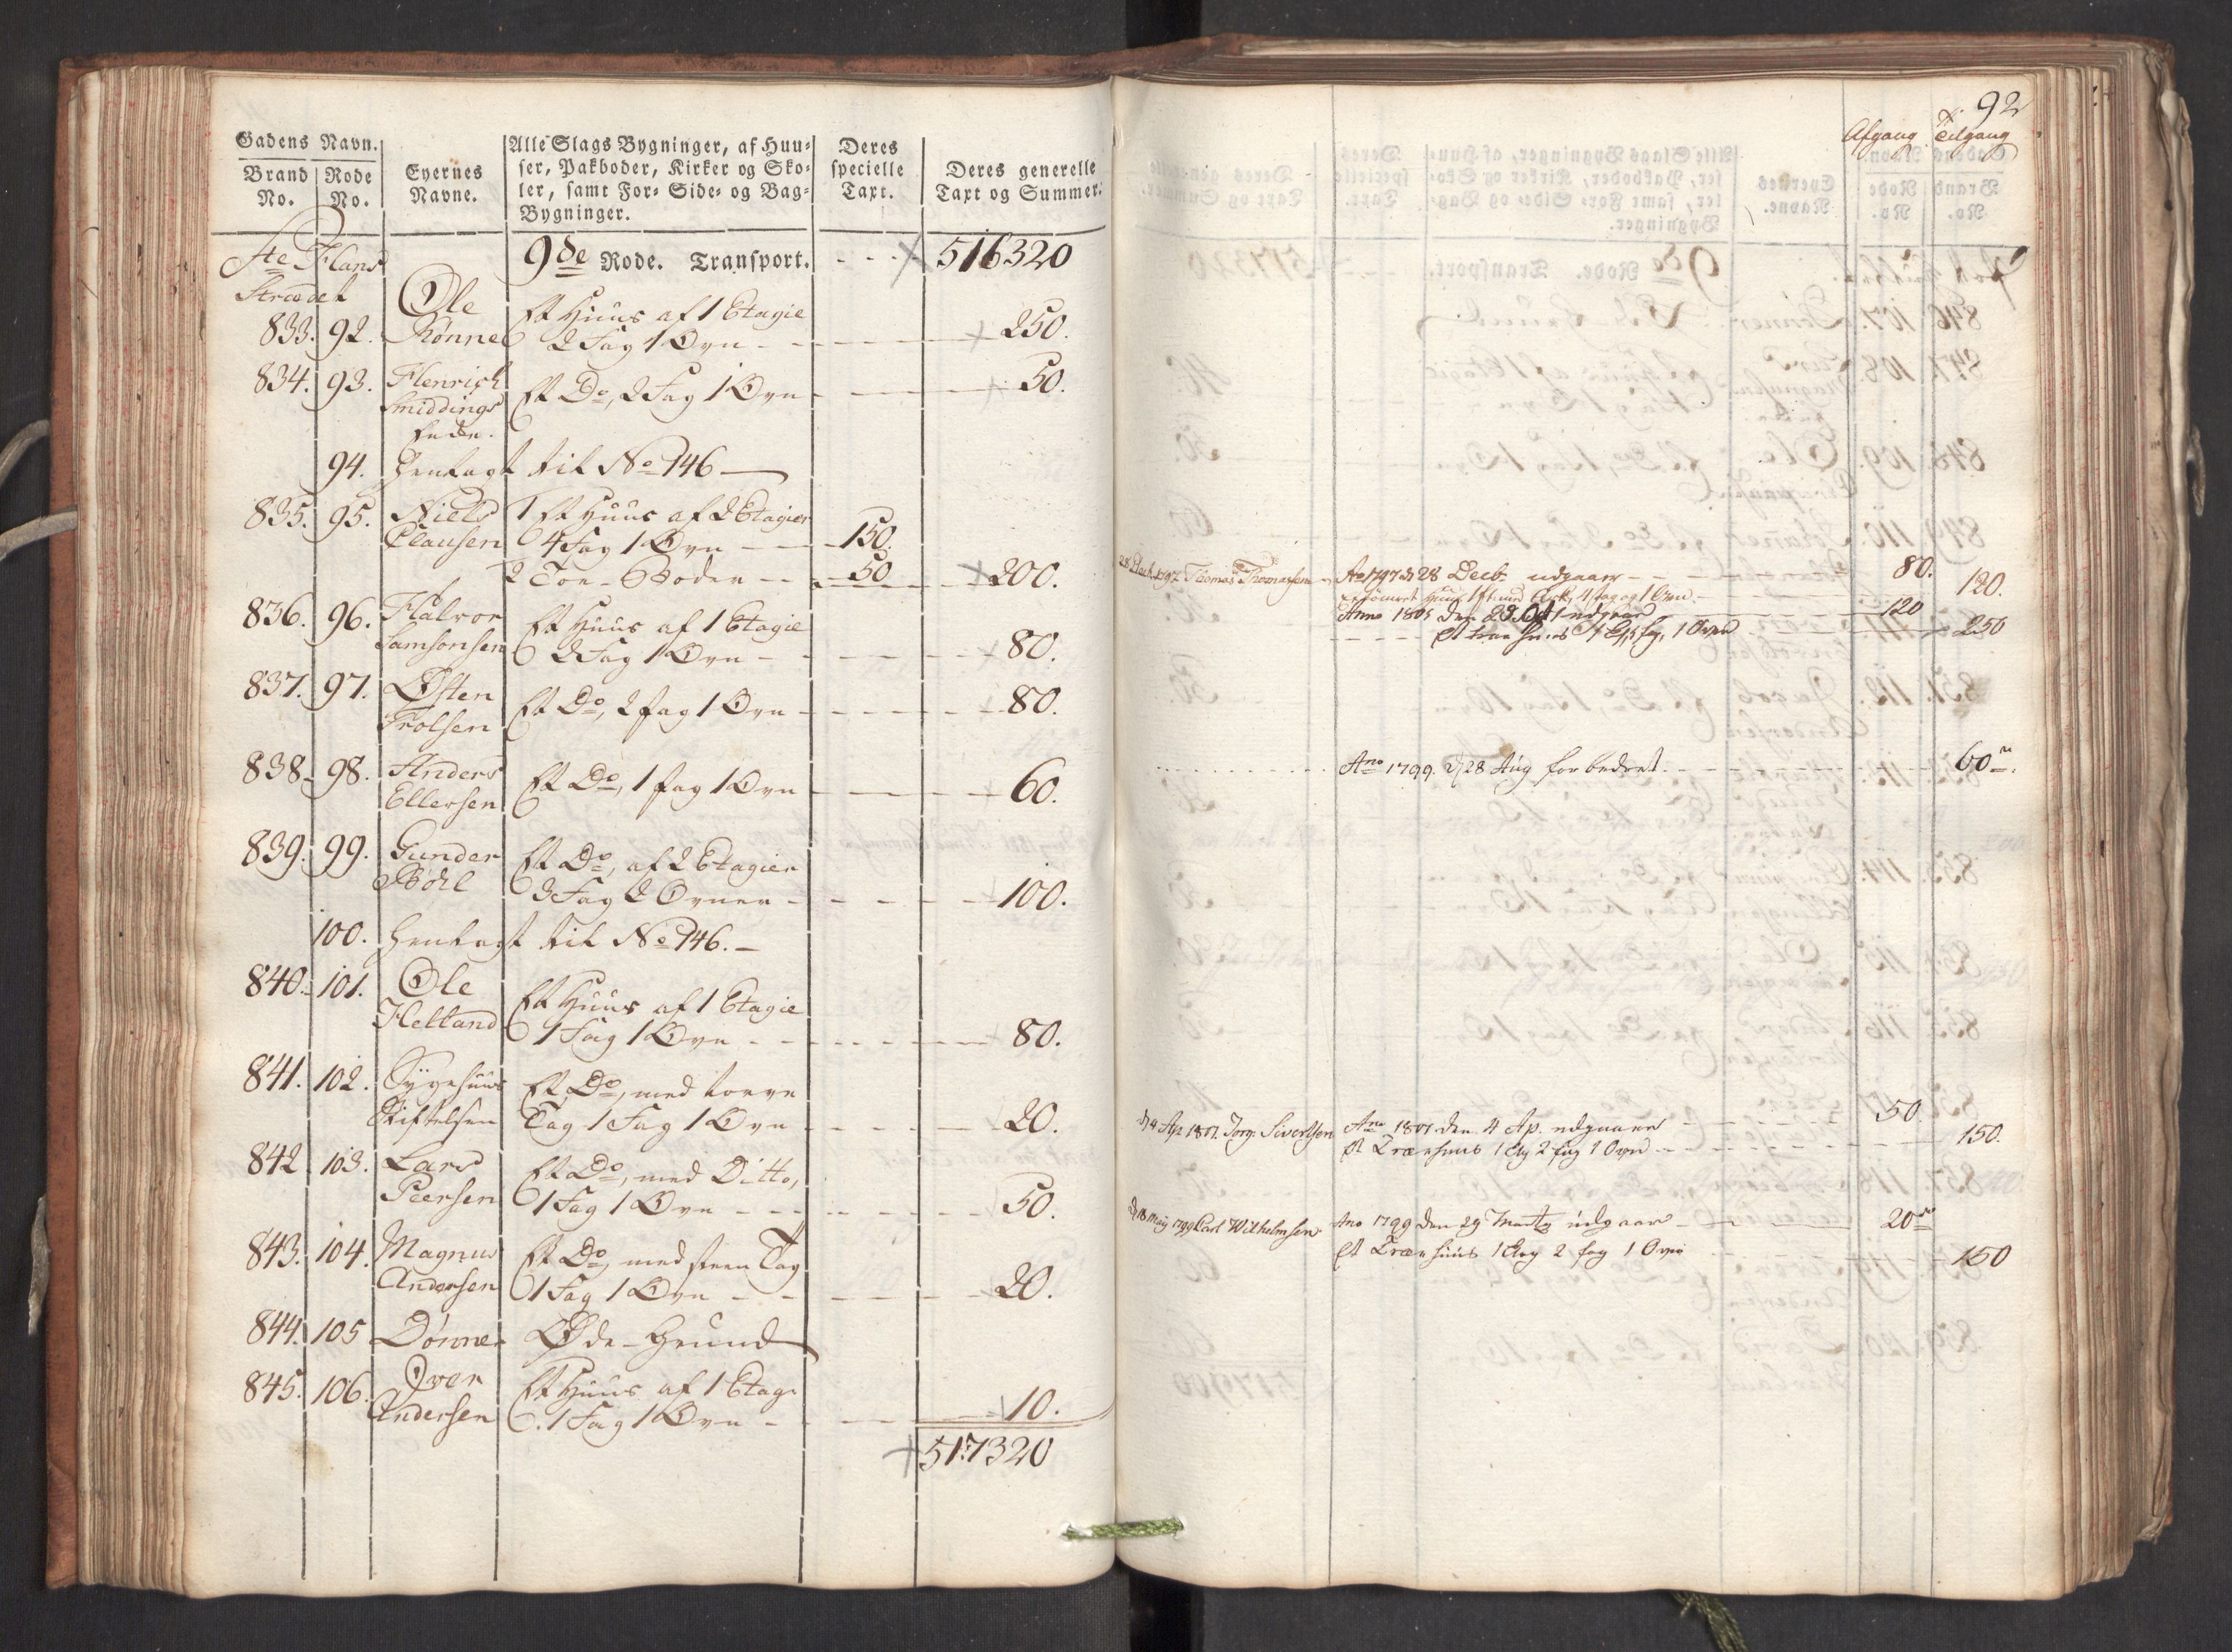 Gadens Navn.
Brand No.
Rode No.
Eyernes Navne.
Alle Slags Bygninger, af Huu-
ser, Pakboder, Kirker og Sko-
ler, samt For- Side- og Bag-
Bygninger.
Deres specielle Taxt.
Deres generelle Taxt og Summer.
Ste Hans 9de Rode. Transport. 516320
Strædet
Ole Et Huus af 1 Etagie
833. 92. Rønne 2 Fag 1 Ovn 250.
834. 93. Henrich Et Do, 2 Fag 1 Ovn 50.
Smiddings
Enke.
94. henlagt til No 146
835. 95. Niels 1 Et Huus af 2 Etagier
Clausen 4 Fag 1 Ovn 150.
2 Toe Boder 50 200.
836. 96. Halvor Et Huus af 1 Etagie
Samsonsen 2 Fag 1 Ovn 80.
837. 97. Østen Et Do, 2 fag 1 Ovn 80.
Trolsen
838. 98. Anders Et Do, 1 fag 1 Ovn 60.
Ellersen
839. 99. Gunder Et Do, af 2 Etagier
Bøhl 3 Fag 2 Ovner 100.
100. henlagt til No 146.
840. 101. Ole Et Huus af 1 Etagie
Helland 1 Fag 1 Ovn 80.
841. 102. Sygehuus Et Do, med torve
Stiftelsen Tag 1 Fag 1 Ovn 20.
842 103. Lars Et Do, med Ditto,
Peersen 1 Fag 1 Ovn 50.
843. 104. Magnus Et Do, med steen Tag
Andersen 1 Fag 1 Ovn 20.
844. 105 Dønner Øde Grund
845. 106. Iver Et Huus af 1 Etage
Andersen 1 Fag 1 Ovn 10.
517320
92
Afgang Tilgang
1797 Thomas Thomassen Ao 1797 d 28 Decb. udgaaer 80.
1 Ovn 120.
Anno 1805 den 28 Oct udgaaer 120
Et Træ Huus 1 Etg, 5 fag, 1 Oven 250
Ano 1799. d 28 Aug forbedret. 60
d 4 Ap 1801. Jørg: Sivertsen Ano 1801 den 4 Ap. udgaaer 50.
Et Træehuus 1 Etg 2 fag 1 Oven 150.
d 18 May 1799 Carl Wilhelmsen Ano 1799 den 29 Marty udgaar 20
Et Træehuus 1 Etag 2 fag 1 Oven 150